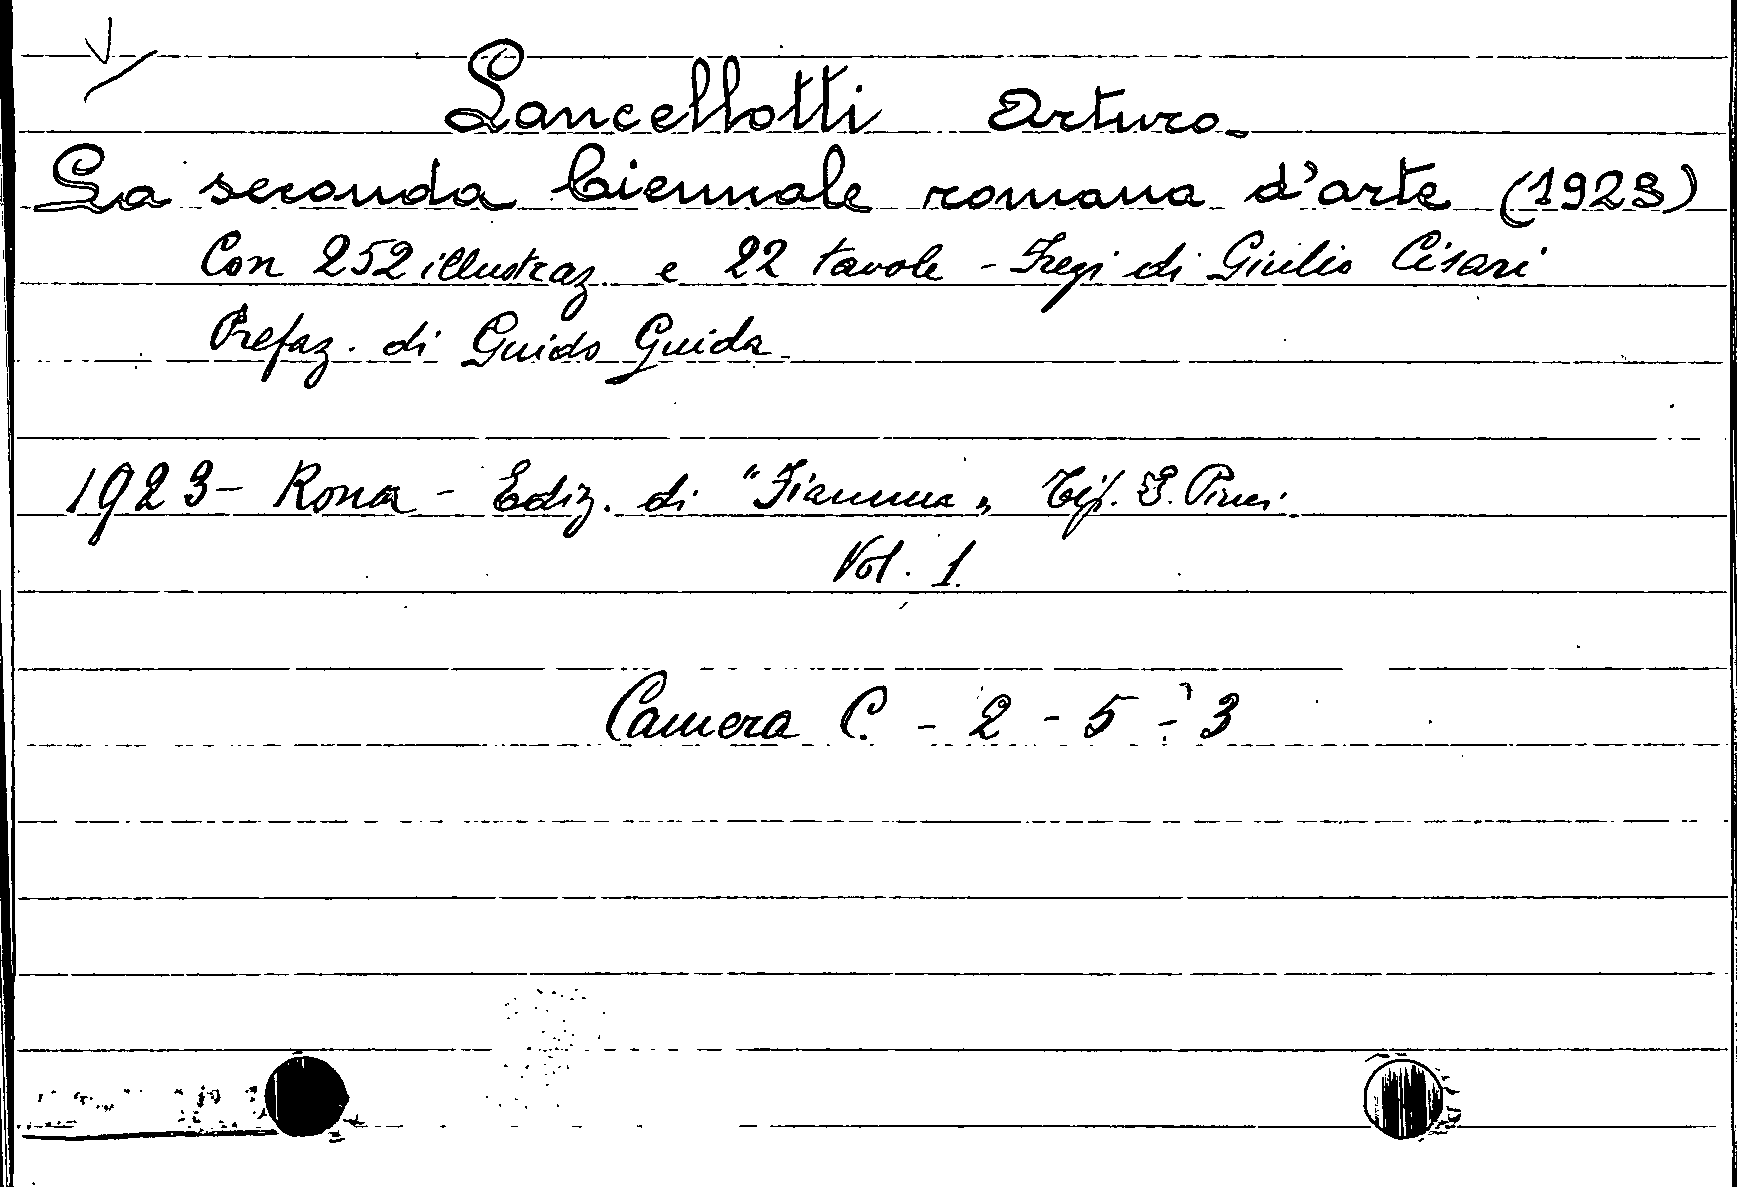 Lancellotti Arturo.
La seconda biennale romana d'arte (1923)
Con 252 illustraz. e 22 tavole - Fregi di Giulio Cisari
Prefaz. di Guido Guida
1923 - Roma - Ediz. di "Fiamma" Tip. S. Pinci.
Vol. 1
Camera C. - 2 - 5 - 3